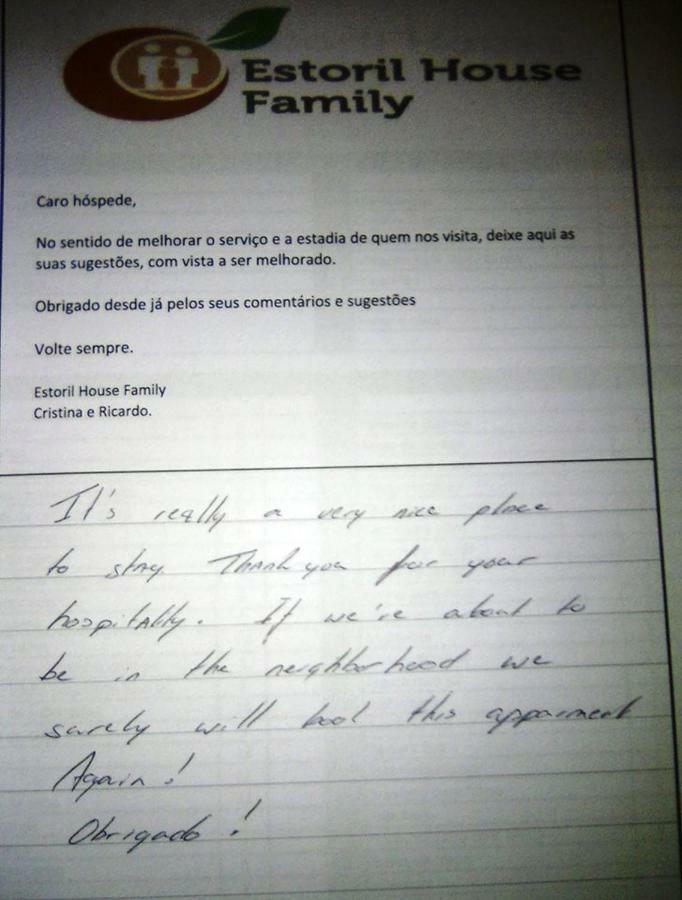 Estoril House
Family
Caro hóspede,
No sentido de melhorar o serviço e a estadia de quem nos visita, deixe aqui as
suas sugestões, com vista a ser melhorado.
Obrigado desde já pelos seus comentários e sugestões
Volte sempre.
Estoril House Family
Cristina e Ricardo.
It's really a very nice place
to stay. Thank you for your
hospitallty. If we're about to
be in the neighborhood we
surely will book this appairment
Again!
Obrigado!